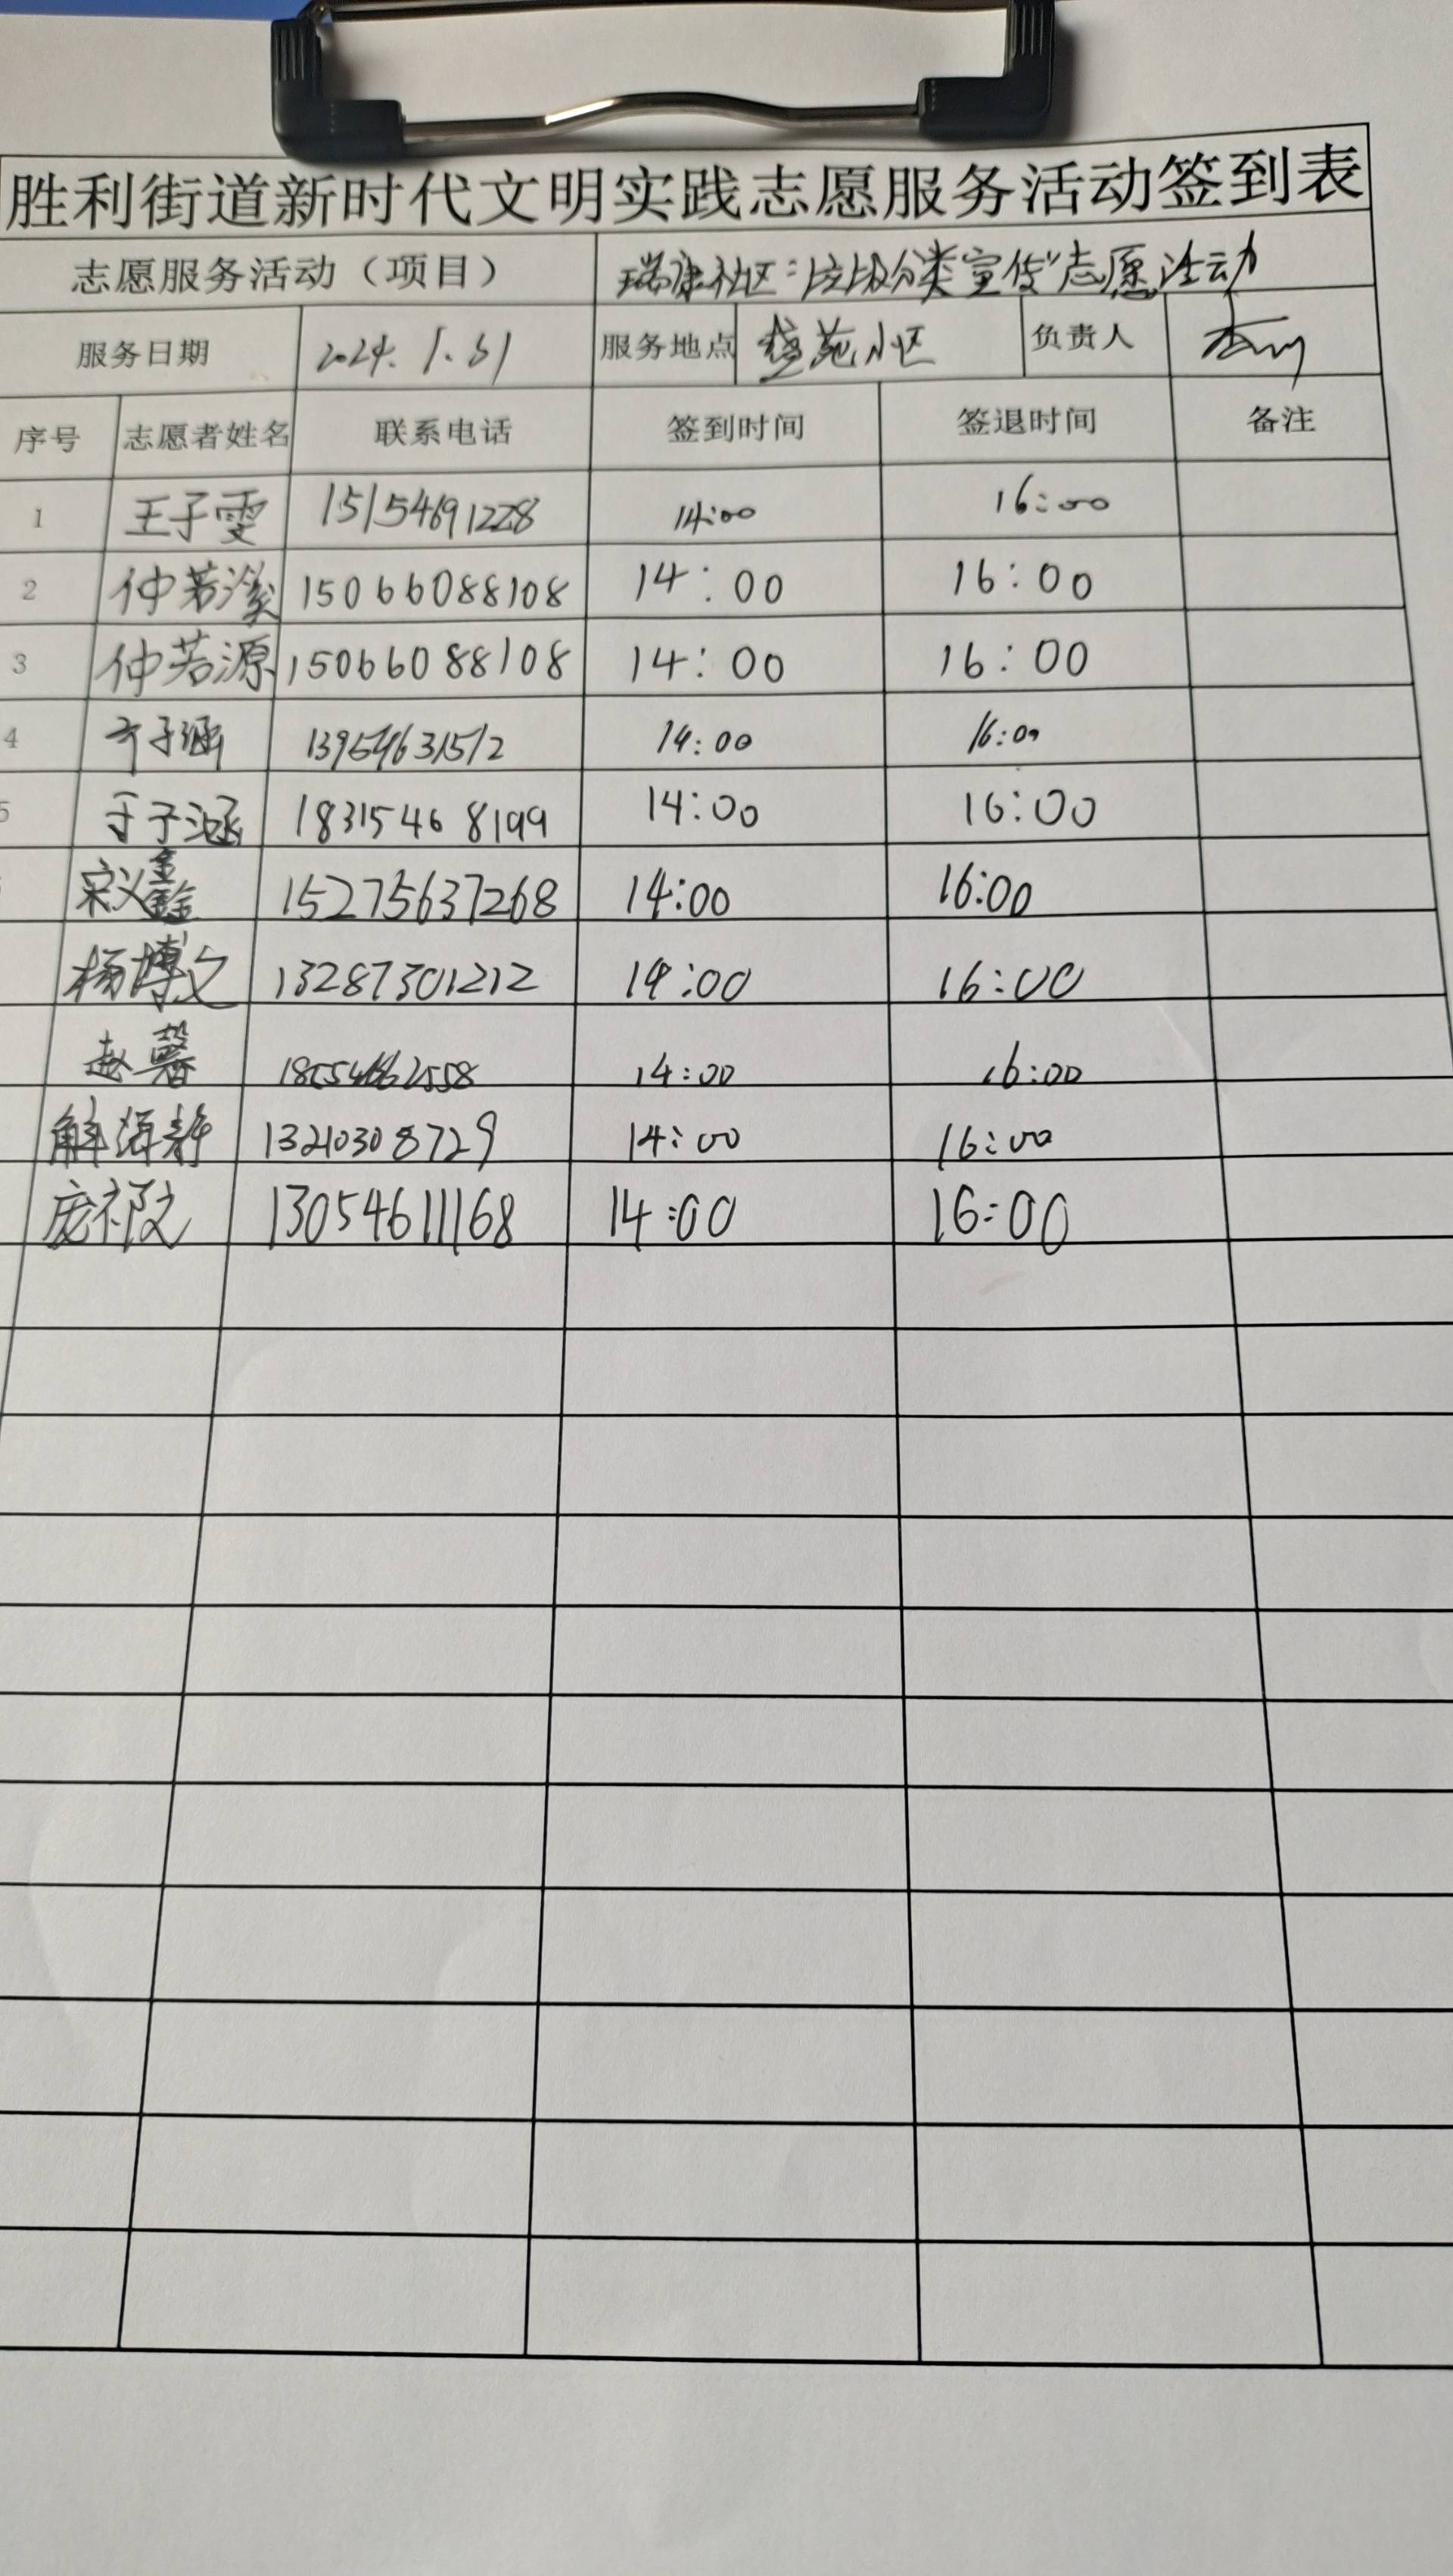 胜利街道新时代文明实践志愿服务活动签到表
志愿服务活动（项目） 瑞康社区：垃圾分类宣传"志愿活动
服务日期 2024.1.31 服务地点 苑小区 负责人
序号 志愿者姓名 联系电话 签到时间 签退时间 备注
1 王子雯 15154691228 14:00 16:00
2 仲若溪 15066088108 14:00 16:00
3 仲若源 15066088108 14:00 16:00
4 子涵 13954631512 14:00 16:00
5 于子涵 18315468199 14:00 16:00
宋义鑫 15275637268 14:00 16:00
杨博文 13287301212 14:00 16:00
赵馨 14:00 16:00
解海静 13210308729 14:00 16:00
庞祁文 13054611168 14:00 16:00